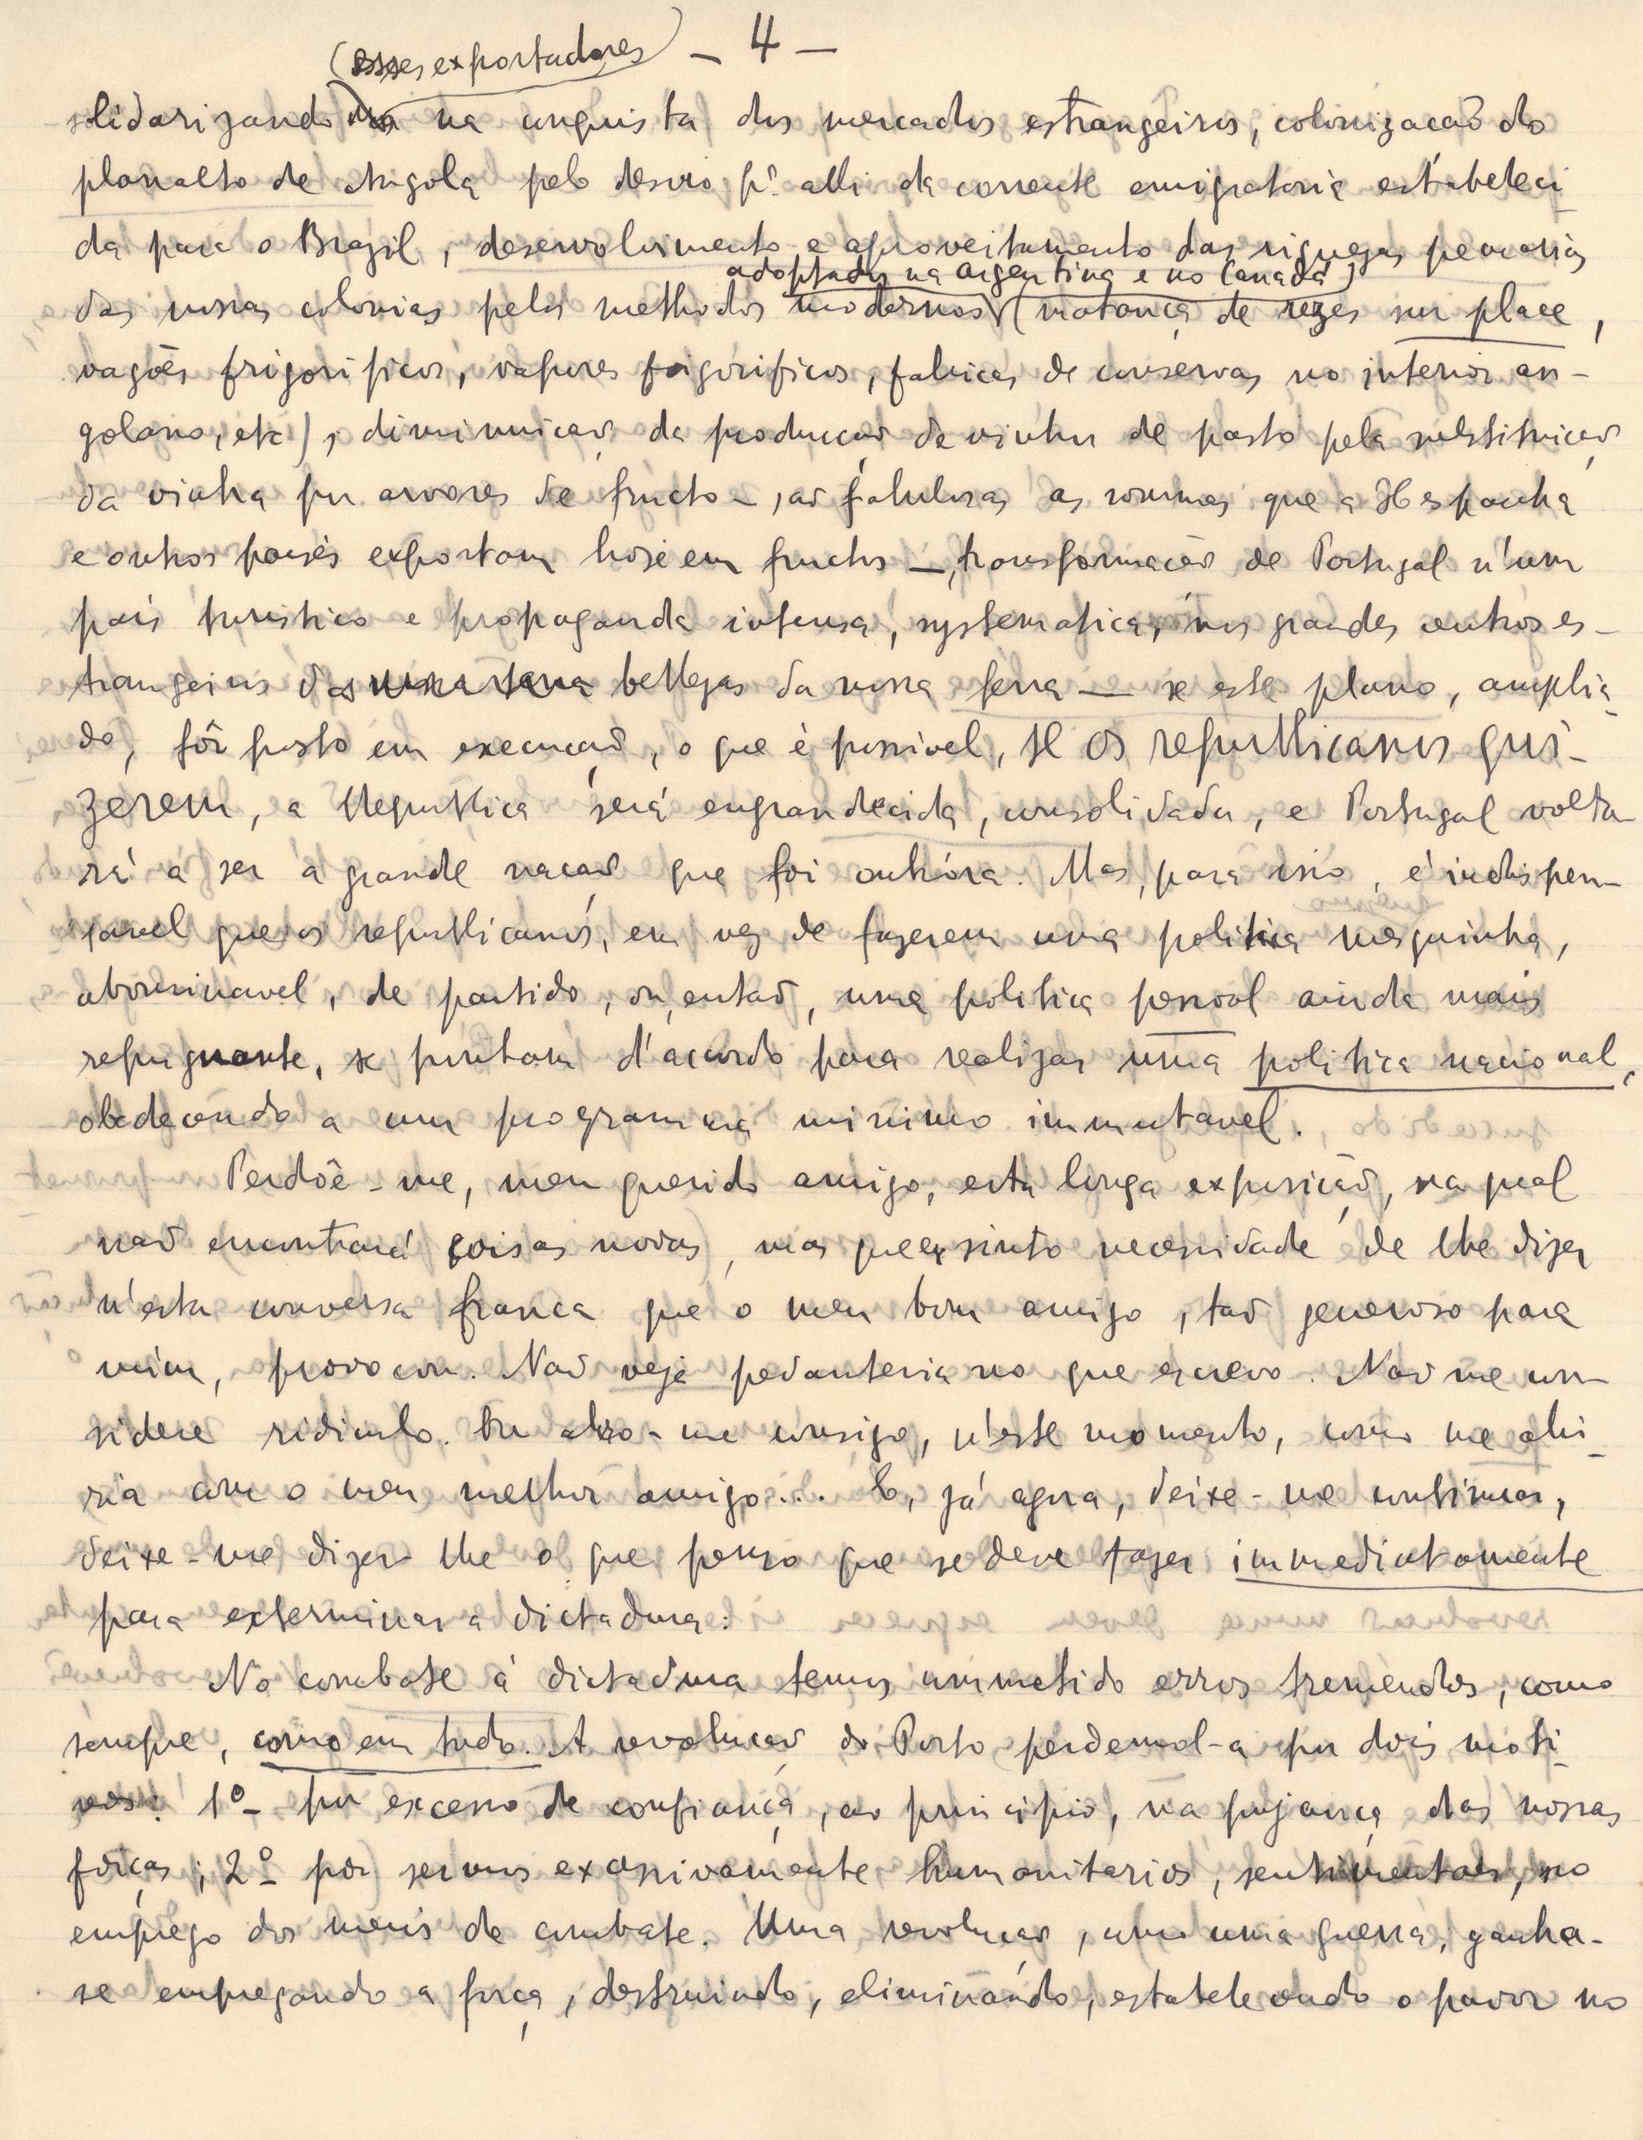 - 4 -
(esses exportadores)
solidarizando na conquista dos mercados estrangeiros, colonização do
planalto de Angola pelo desvio pª. alli da corrente emigratoria estabeleci-
da para o Brazil, desenvolvimento e aproveitamento das riquezas pecuarias
adoptados na Argentina e no Canadá
das nossas colonias pelos methodos modernos (matança de rezes sur place,
vagões frigorificos, vapores frigorificos, fabricas de conservas no interior an-
golano, etc), diminuição da producção de vinhos de pasto pela substituição
da vinha por arvores de fructo -, são fabulosas as sommas que a Hespanha
e outros paises exportam hoje em fructos -, transformação de Portugal n'um
país turistico e propaganda intensa, systematica, nos grandes centros es-
trangeiros das bellezas da nossa terra — se este plano, amplia-
do, fôr posto em execução, o que é possivel, se os republicanos qui-
zerem, a Republica será engrandecida, consolidada, e Portugal volta-
rá a ser a grande nação que foi outróra. Mas, para isso, é indispen-
savel que os republicanos, em vez de fazerem uma politica mesquinha,
abominavel, de partido, ou, então, uma politica pessoal ainda mais
repugnante, se juntem d'acordo para realizar uma politica nacional,
obedecendo a um programma minimo immutavel.
Perdôe-me, meu querido amigo, esta longa exposição, na qual
não encontrará coisas novas, mas que sinto necessidade de lhe dizer
n'esta conversa franca que o meu bom amigo, tão generoso para
mim, provocou. Não veja pedanteria no que escrevo. Não me con-
sidere ridiculo. Eu abro-me consigo, n'este momento, como me abri-
ria com o meu melhor amigo... E, já agora, deixe-me continuar,
deixe-me dizer-lhe o que penso que se deve fazer immediatamente
para exterminar a dictadura:
No combate á dictadura temos commetido erros tremendos, como
sempre, como em tudo. A revolução do Porto perdemol-a por dois moti-
vos: 1º- por excesso de confiança, ao principio, na pujança das nossas
forças; 2º- por sermos excessivamente humanitarios, sentimentaes, no
emprego dos meios de combate. Uma revolução, como uma guerra, ganha-
se empregando a força, destruindo, eliminando, estabelecendo o pavor no